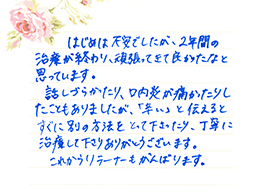 はじめは不安でしたが、2年間の
治療が終わり、頑張ってきて良かったなと
思っています。
話しづらかったり、口内炎が痛かったりし
たこともありましたが、「辛い」と伝えると
すぐに別の方法をとって下さったり、丁寧に
治療して下さりありがとうございます。
これからリテーナーもがんばります。